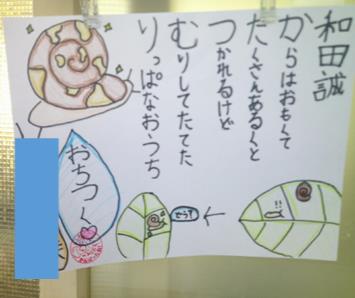 和田誠
からはおもくて
たくさんあるくと
つかれるけど
むりしてたてた
りっぱなおうち
おちつく
!!